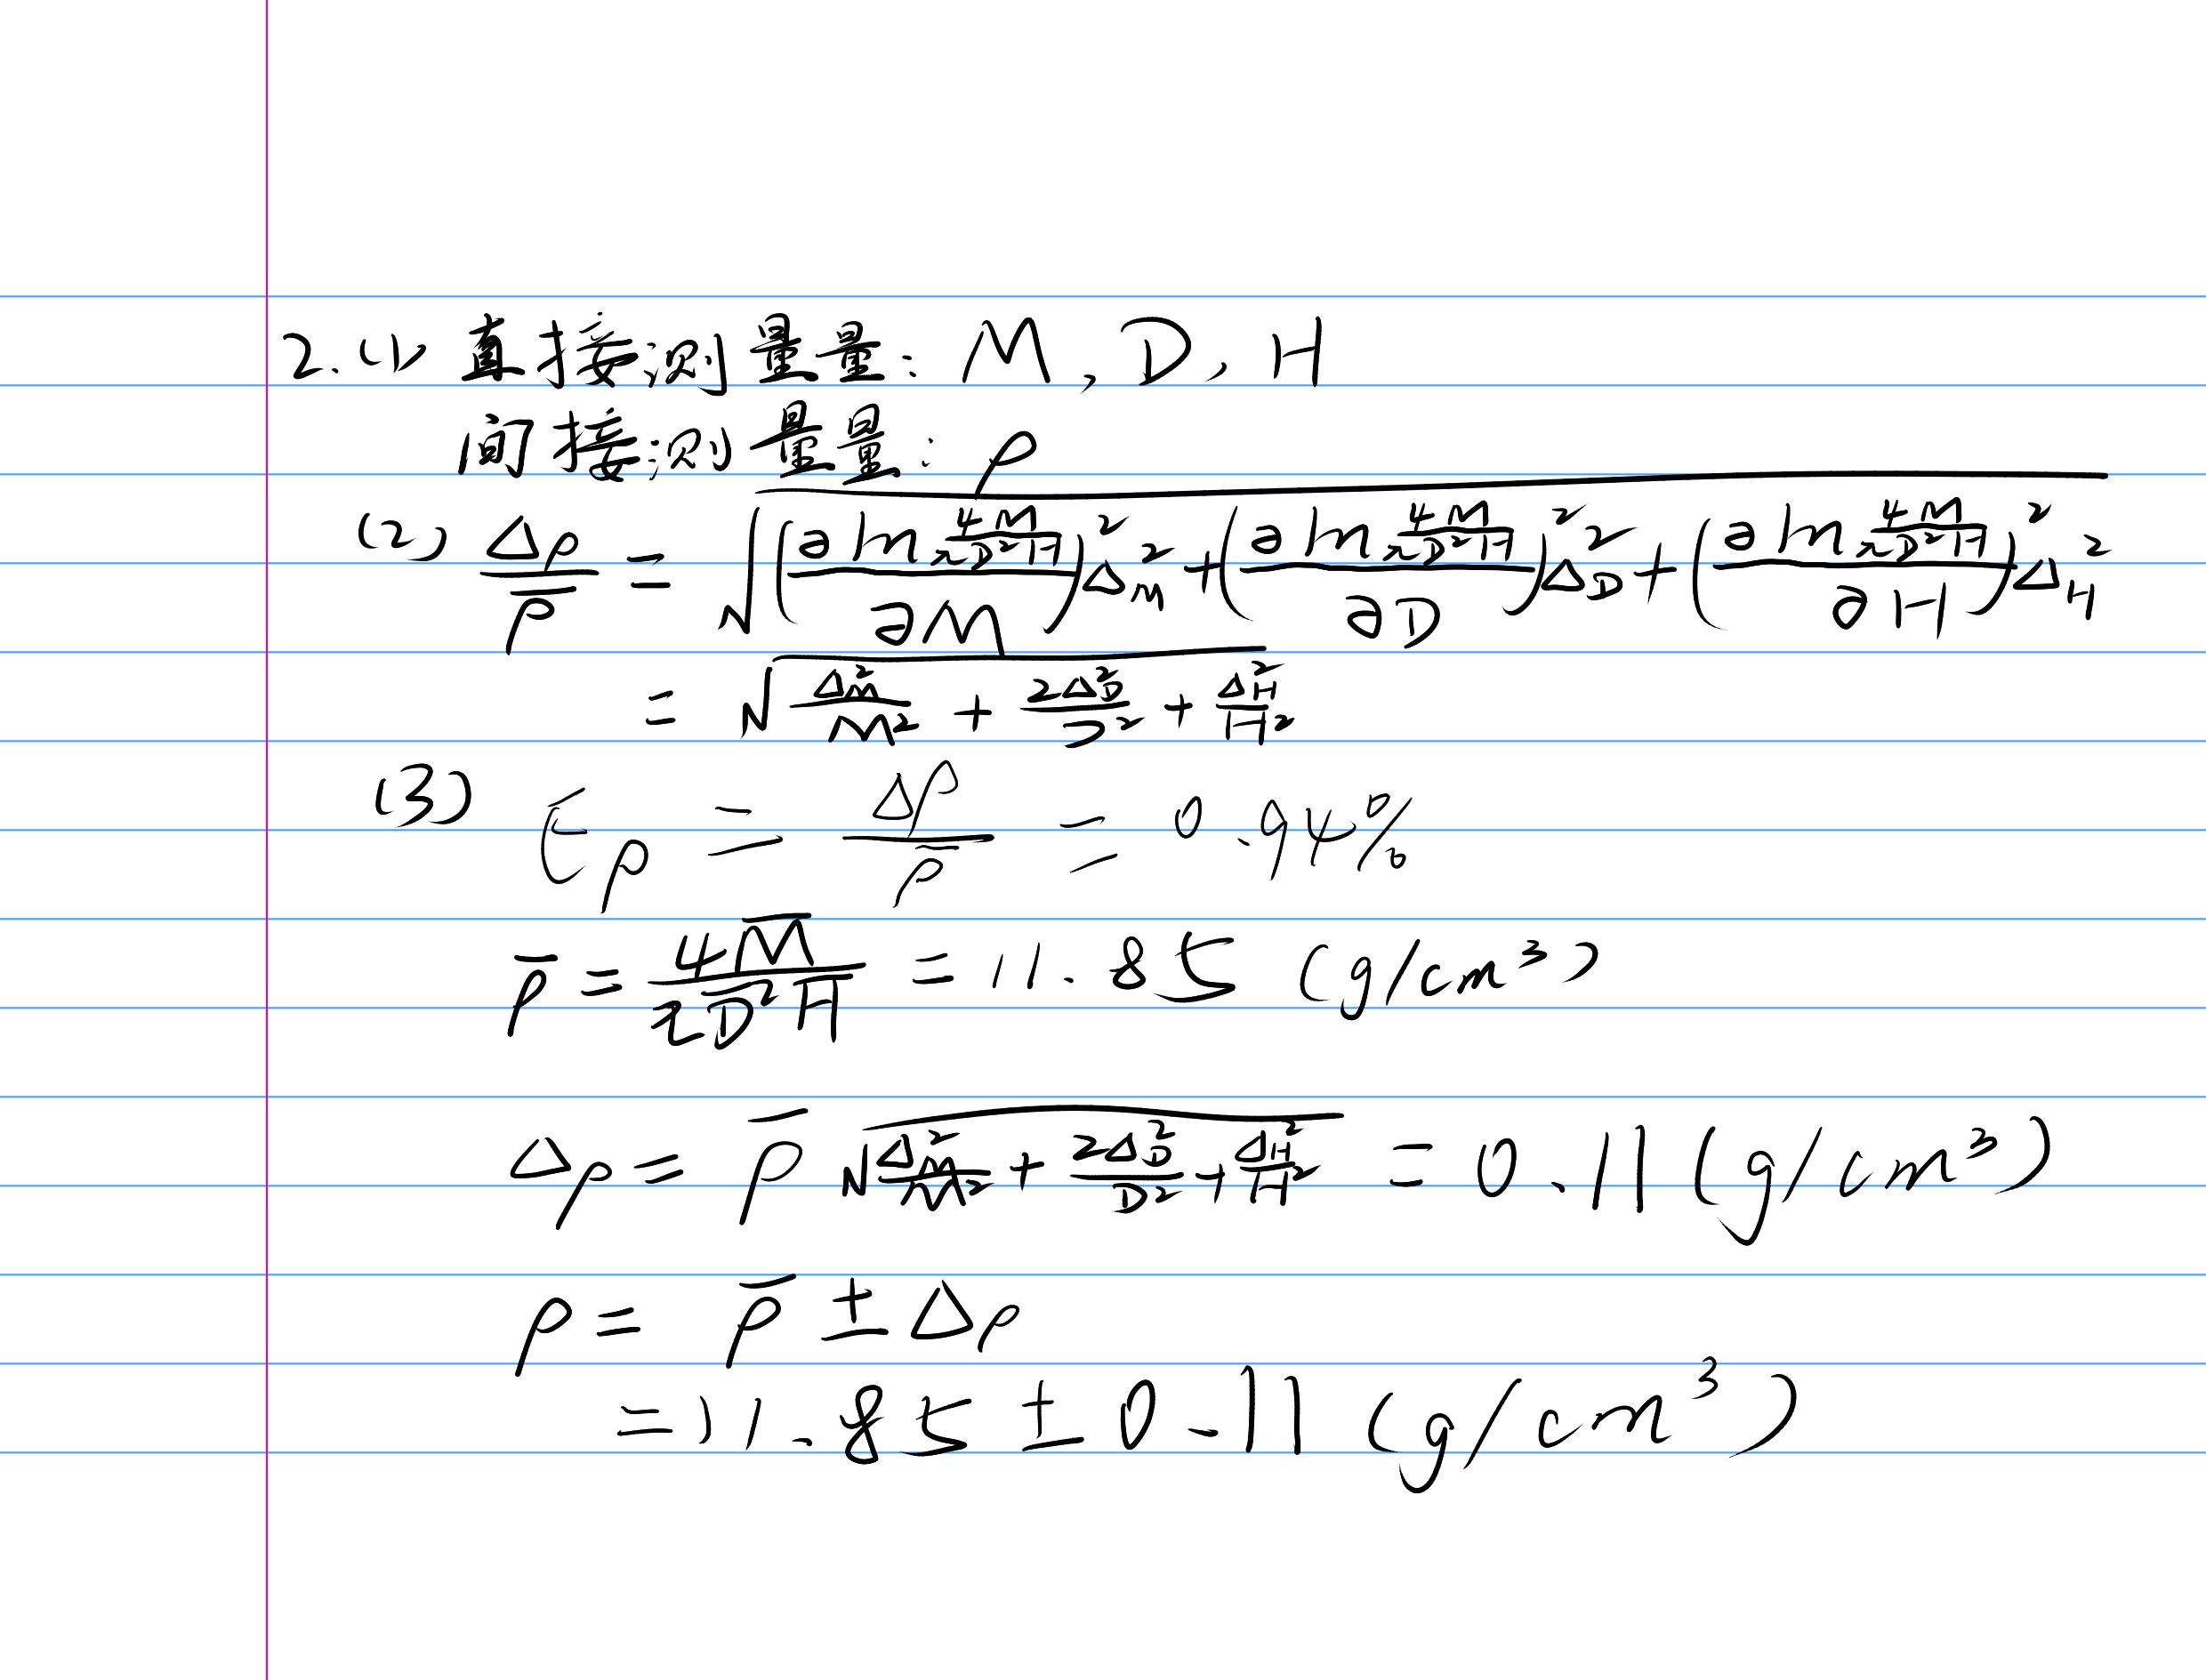 2.(1) 直接测量量: M, D, H
间接测量量: ρ
(2) Δρ/ρ̄ = √((∂ln(4M/πD²H)/∂M)²Δ_M² + (∂ln(4M/πD²H)/∂D)²Δ_D² + (∂ln(4M/πD²H)/∂H)²Δ_H²)
= √(Δ_M²/M² + 2Δ_D²/D² + Δ_H²/H²)
(3) E_ρ = Δρ/ρ̄ = 0.94%
ρ̄ = 4M̄/πD̄²H̄ = 11.85 (g/cm³)
Δρ = ρ̄ √(Δ_M²/M² + 2Δ_D²/D² + Δ_H²/H²) = 0.11 (g/cm³)
ρ = ρ̄ ± Δρ
= 11.85 ± 0.11 (g/cm³)